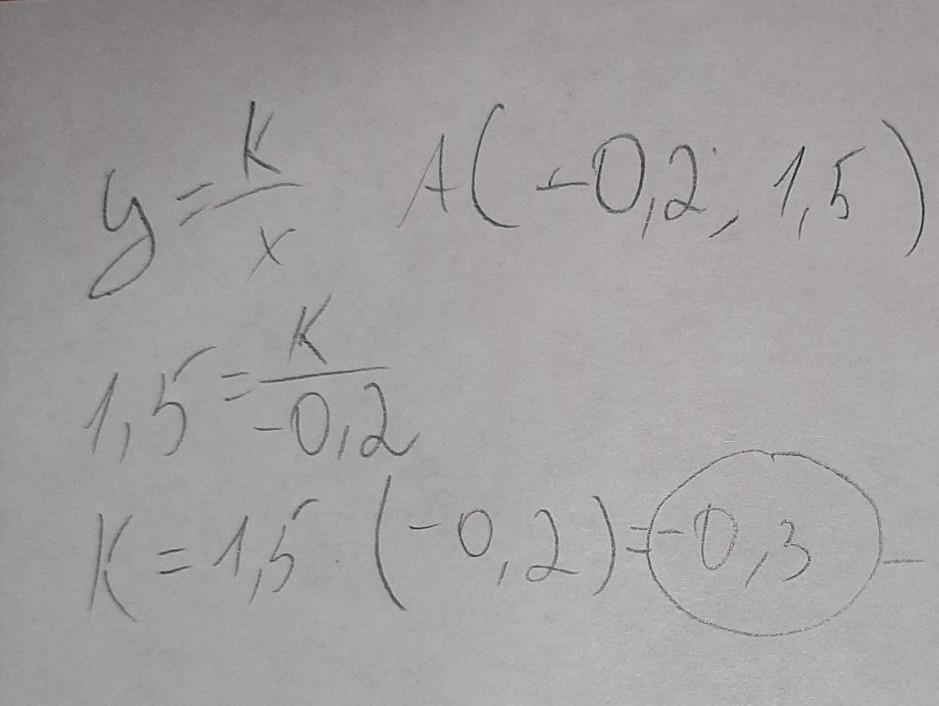 y = K/x A(-0,2, 1,5)
1,5 = K/-0,2
K = 1,5 · (-0,2) = -0,3 -